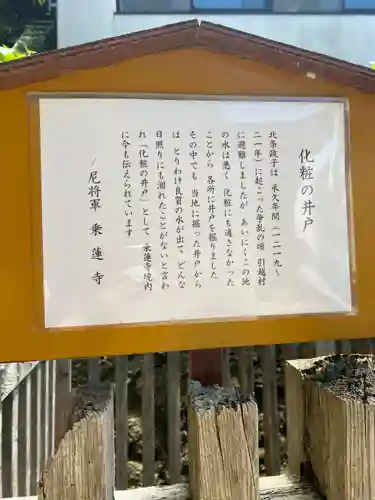 化粧の井戸
北条政子は 承久年間（一二一九～
二一年）に起こった争乱の頃 引越村
に避難しましたが、あいにくこの地
の水は悪く 化粧にも適さなかった
ことから 各所に井戸を掘りました
その中でも 当地に掘った井戸から
は とりわけ良質の水が出て、どんな
日照りにも涸れたことがないと言わ
れ「化粧の井戸」として、乗蓮寺境内
に今も伝えられています
尼将軍 乗蓮寺